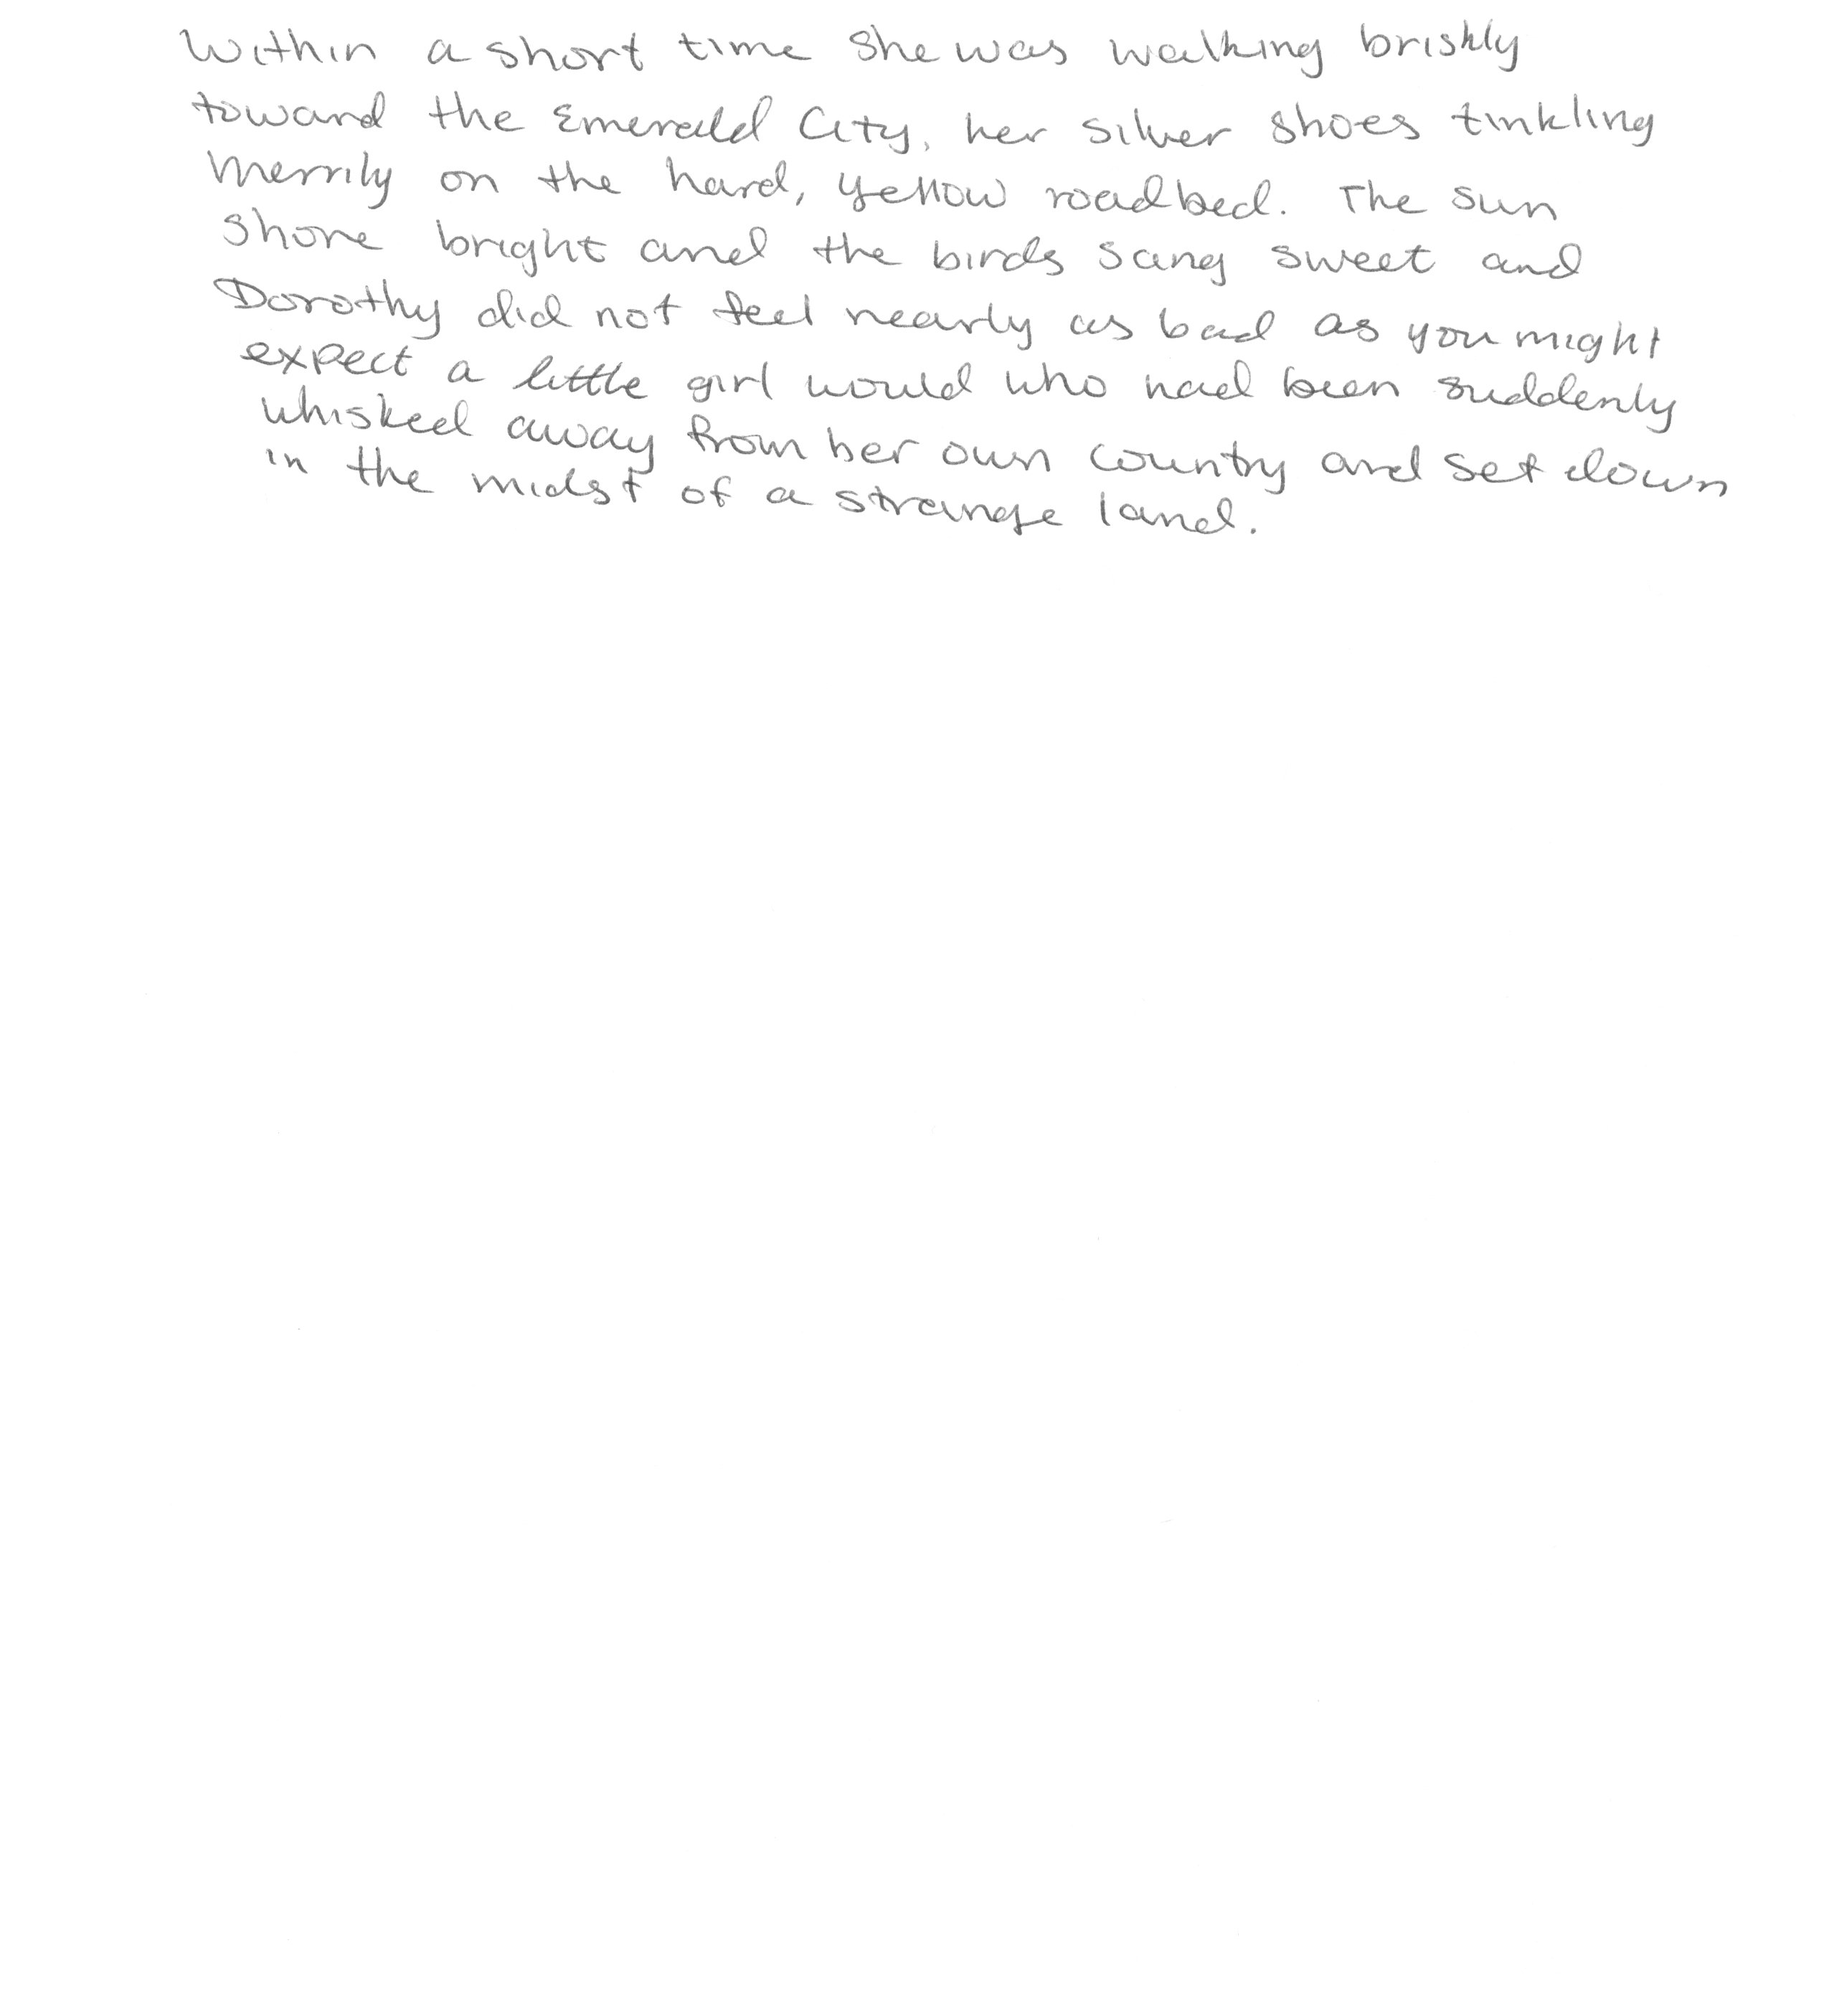 Within a short time she was walking briskly
toward the Emerald City, her silver shoes tinkling
merrily on the hard, yellow roadbed. The sun
shone bright and the birds sang sweet and
Dorothy did not feel nearly as bad as you might
expect a little girl would who had been suddenly
whisked away from her own country and set down
in the midst of a strange land.